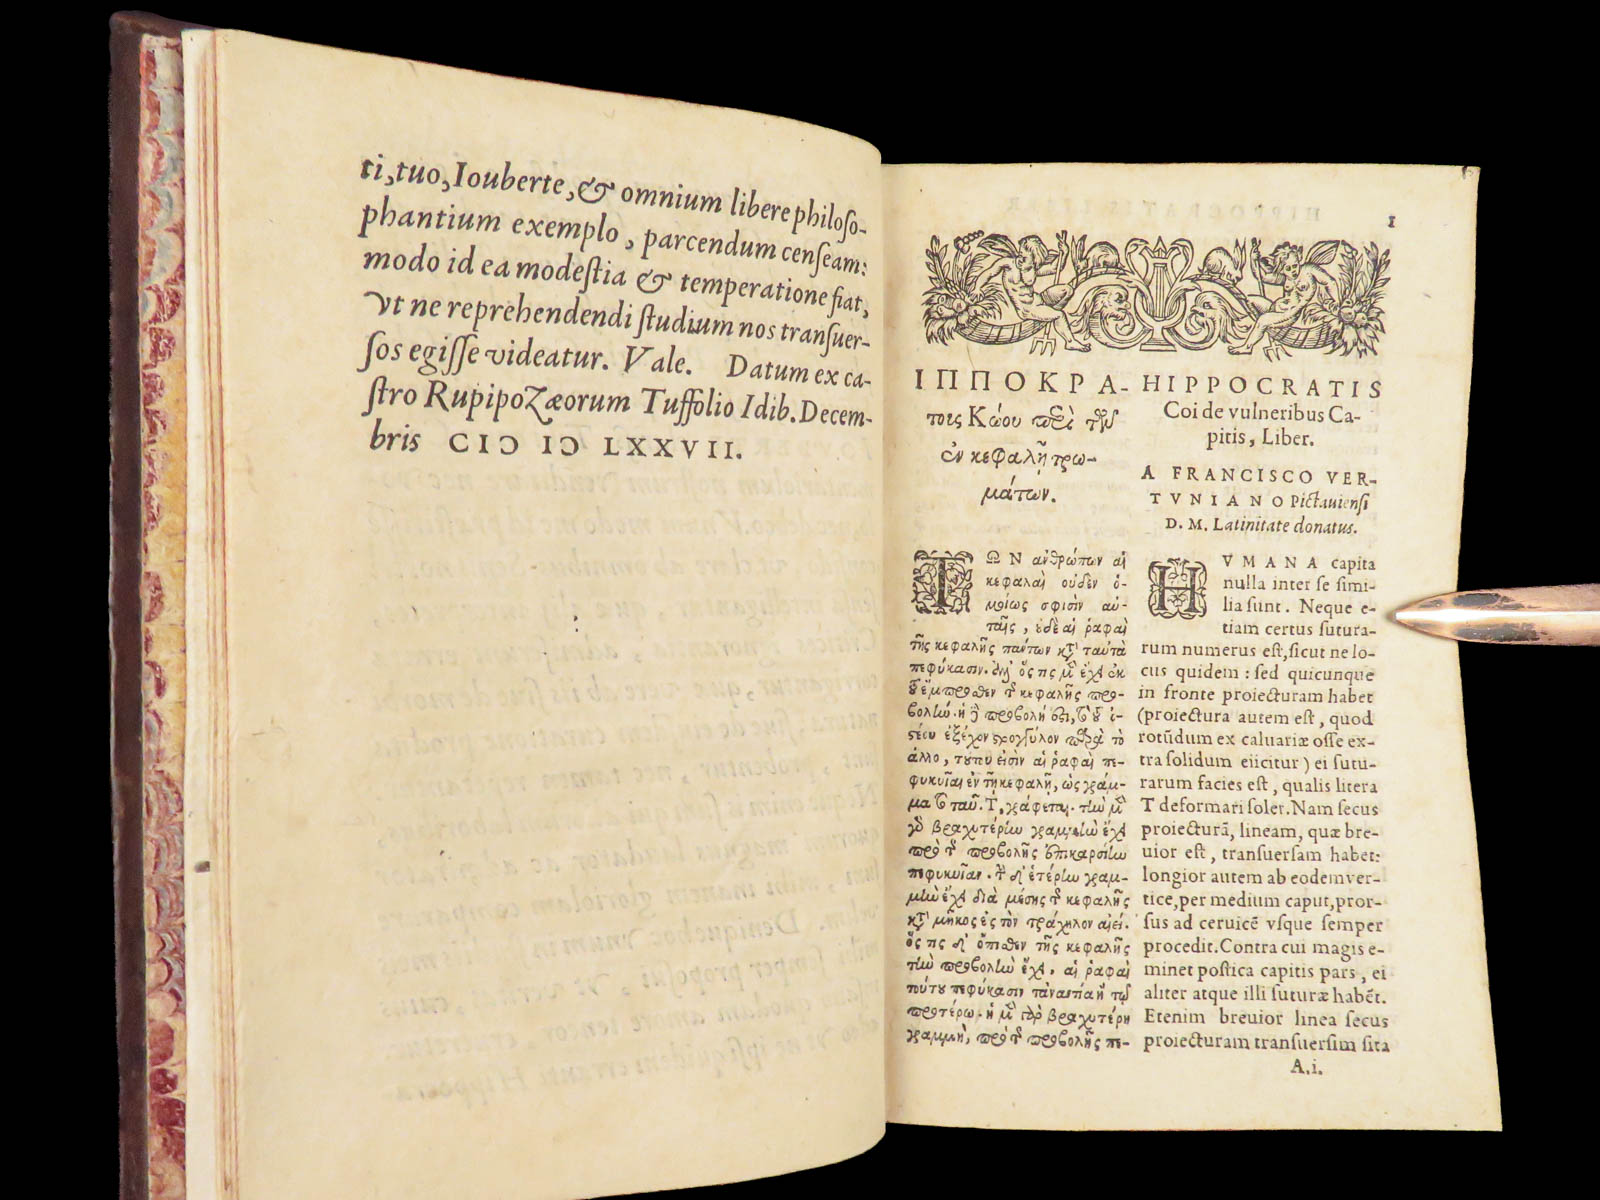 ti, tuo, Iouberte, & omnium libere philoso-
phantium exemplo, parcendum censeam:
modo id ea modestia & temperatione fiat,
vt ne reprehendendi studium nos transuer-
sos egisse videatur. Vale. Datum ex ca-
stro Rupipozæorum Tuffolio Idib. Decem-
bris CIↃ IↃ LXXVII.
1
ΙΠΠΟΚΡΑ-
τοις Κώου περὶ τῶν
ἐν κεφαλῇ τρω-
μάτων.
ΤΩΝ ἀνθρώπων αἱ
κεφαλαὶ οὐδὲν ὁ-
μοίως σφισὶν αὐ-
ταῖς, οὐδὲ αἱ ῥαφαὶ
τῆς κεφαλῆς πάντων κατὰ ταὐτὰ
πεφύκασιν. ἀλλ' ὅς τις μὲν ἔχει ἐκ
τοῦ ἔμπροσθεν τῆς κεφαλῆς προ-
βολὴν· ἡ δὲ προβολή ἐστι, τὸ τοῦ ὀ-
στέου ἐξέχον στρογγύλον παρὰ τὸ
ἄλλο, τούτου εἰσὶν αἱ ῥαφαὶ πε-
φυκυῖαι ἐν τῇ κεφαλῇ, ὡς γράμ-
μα τὸ ταῦ. Τ, γράφεται. τὴν μὲν
γὰρ βραχυτέρην γραμμὴν ἔχει
πρὸ τῆς προβολῆς ἐπικαρσίην
πεφυκυῖαν. τὴν δ' ἑτέρην γραμ-
μὴν ἔχει διὰ μέσης τῆς κεφαλῆς
κατὰ μῆκος ἐς τὸν τράχηλον αἰεί.
ὅς τις δ' ὄπισθεν τῆς κεφαλῆς
τὴν προβολὴν ἔχει, αἱ ῥαφαὶ
τούτου πεφύκασιν τἀναντία ἢ τῷ
προτέρῳ. ἡ μὲν γὰρ βραχυτέρη
γραμμὴ, πρὸ τῆς προβολῆς πε-
HIPPOCRATIS
Coi de vulneribus Ca-
pitis, Liber.
A FRANCISCO VER-
TVNIANO Pictauiensi
D. M. Latinitate donatus.
HVMANA capita
nulla inter se simi-
lia sunt. Neque e-
tiam certus sutura-
rum numerus est, sicut ne lo-
cus quidem: sed quicunque
in fronte proiecturam habet
(proiectura autem est, quod
rotūdum ex caluariæ osse ex-
tra solidum eiicitur) ei sutu-
rarum facies est, qualis litera
T deformari solet. Nam secus
proiecturā, lineam, quæ bre-
uior est, transuersam habet:
longior autem ab eodem ver-
tice, per medium caput, pror-
sus ad ceruicē vsque semper
procedit. Contra cui magis e-
minet postica capitis pars, ei
aliter atque illi suturæ habēt.
Etenim breuior linea secus
proiecturam transuersim sita
A.i.